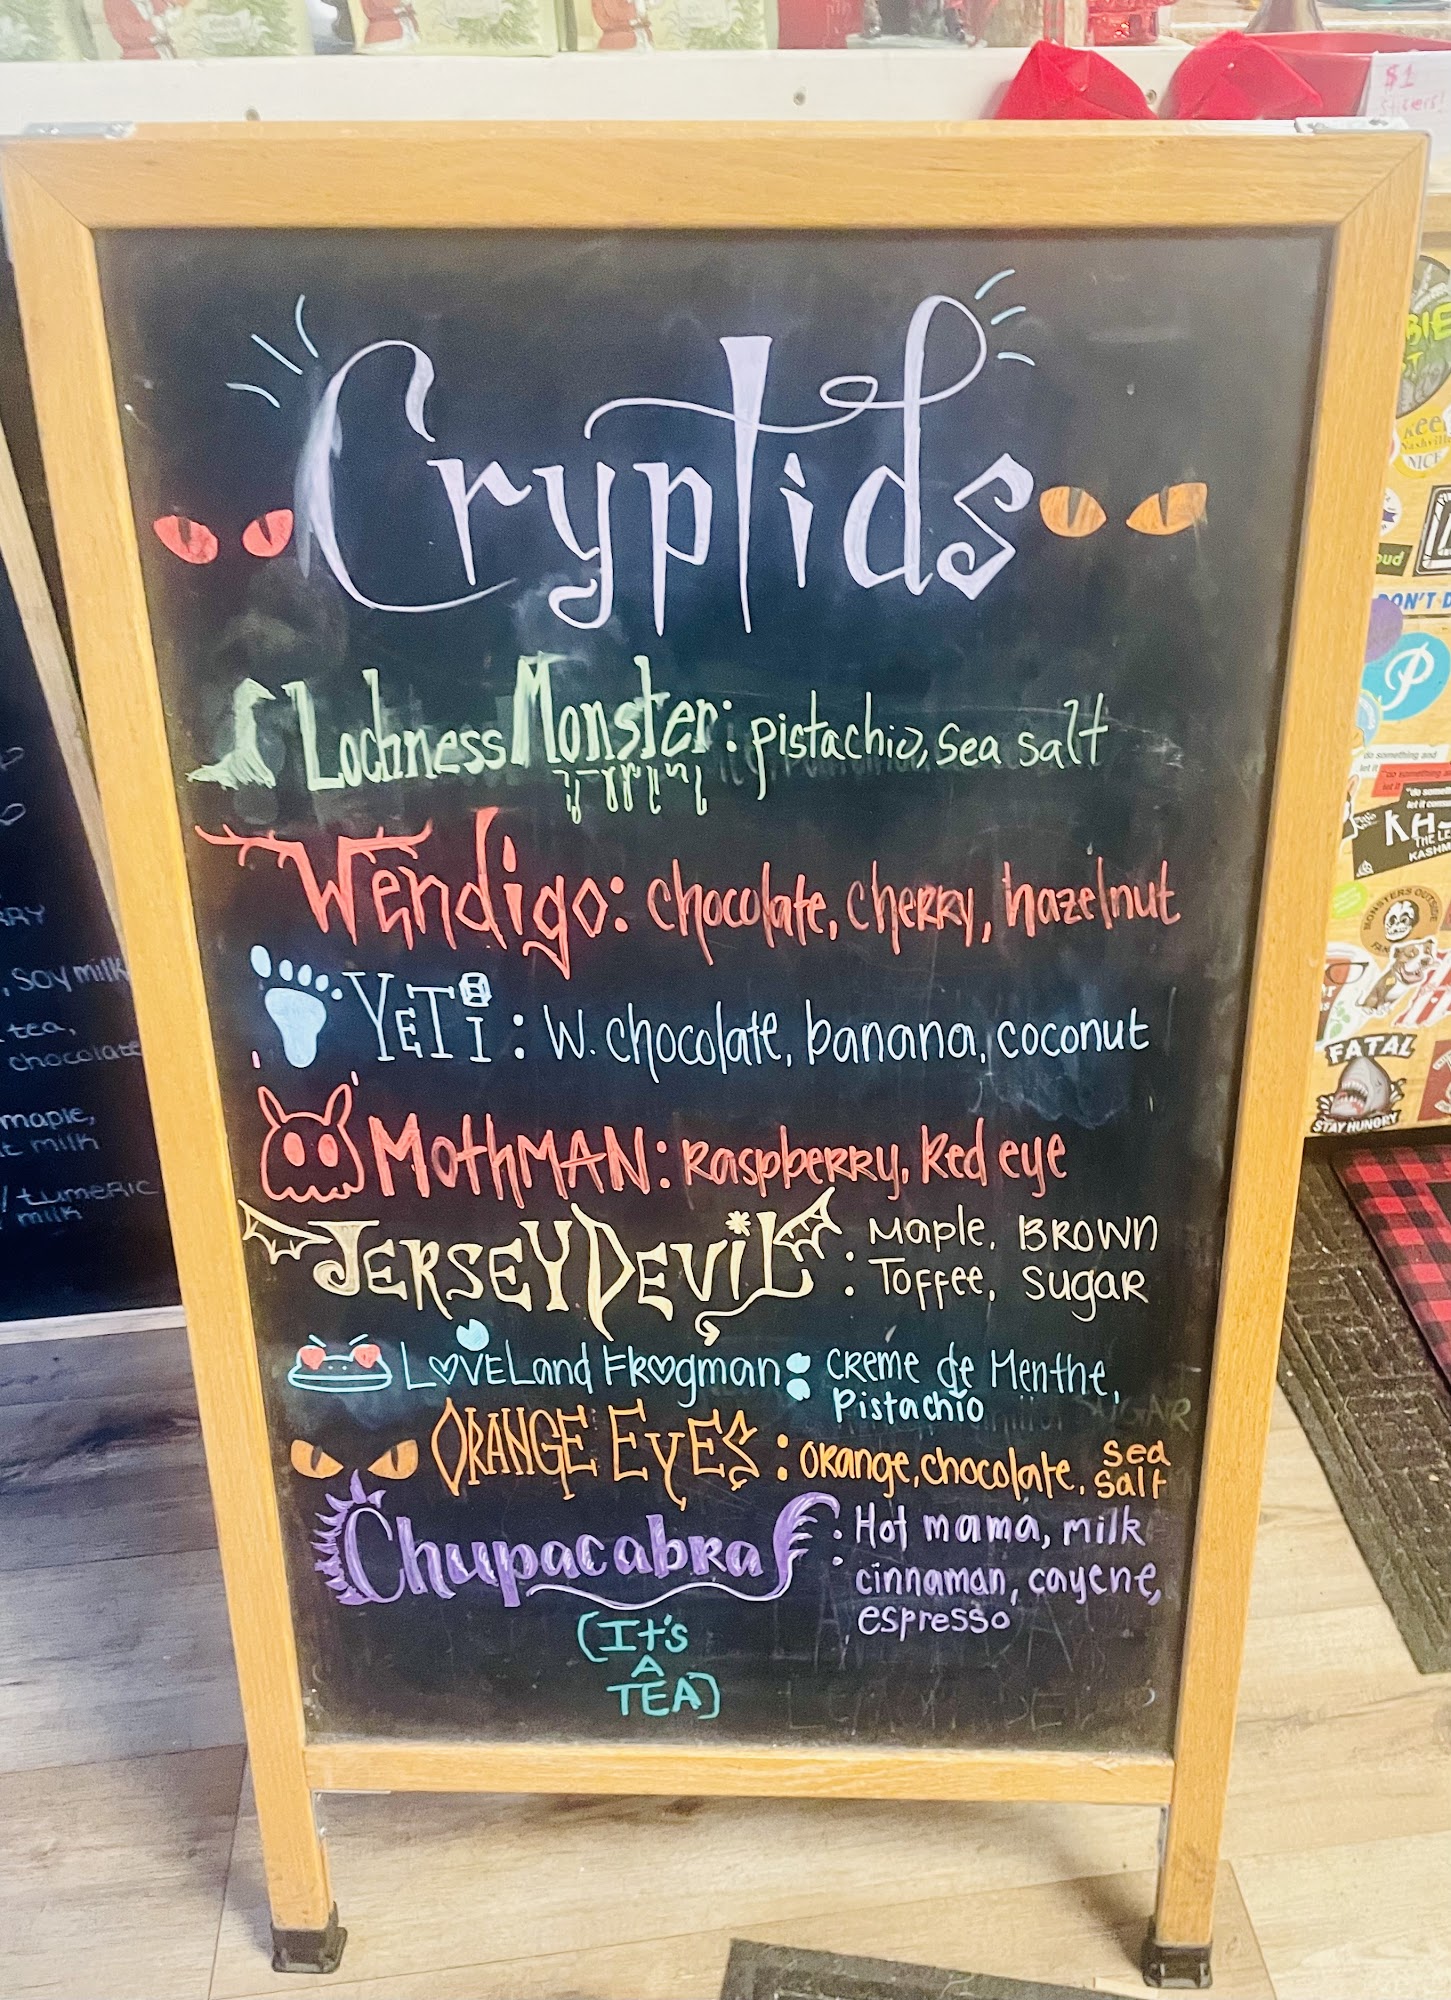 $1
Stickers!
Cryptids
Lochness Monster: pistachio, sea salt
Wendigo: chocolate, cherry, hazelnut
Yeti: W. chocolate, banana, coconut
MothMAN: Raspberry, Red eye
JERSEY DEViL: Maple, BROWN
Toffee, sugar
LOVELand FROgman: Creme de Menthe,
Pistachio
ORANGE EyES: orange, chocolate, sea
salt
Chupacabra: Hot mama, milk
cinnaman, cayene,
espresso
(It's
A
TEA)
RRY
, Soy milk
tea,
chocolate
maple,
milk
/ tumeric
milk
Keep
Nashville
NICE
oud
DON'T D
P
do something and
let it
"do something and
let it
"do some
let it com
KASHM
THE LE
MONSTERS OUTSIDE
FATAL
STAY HUNGRY